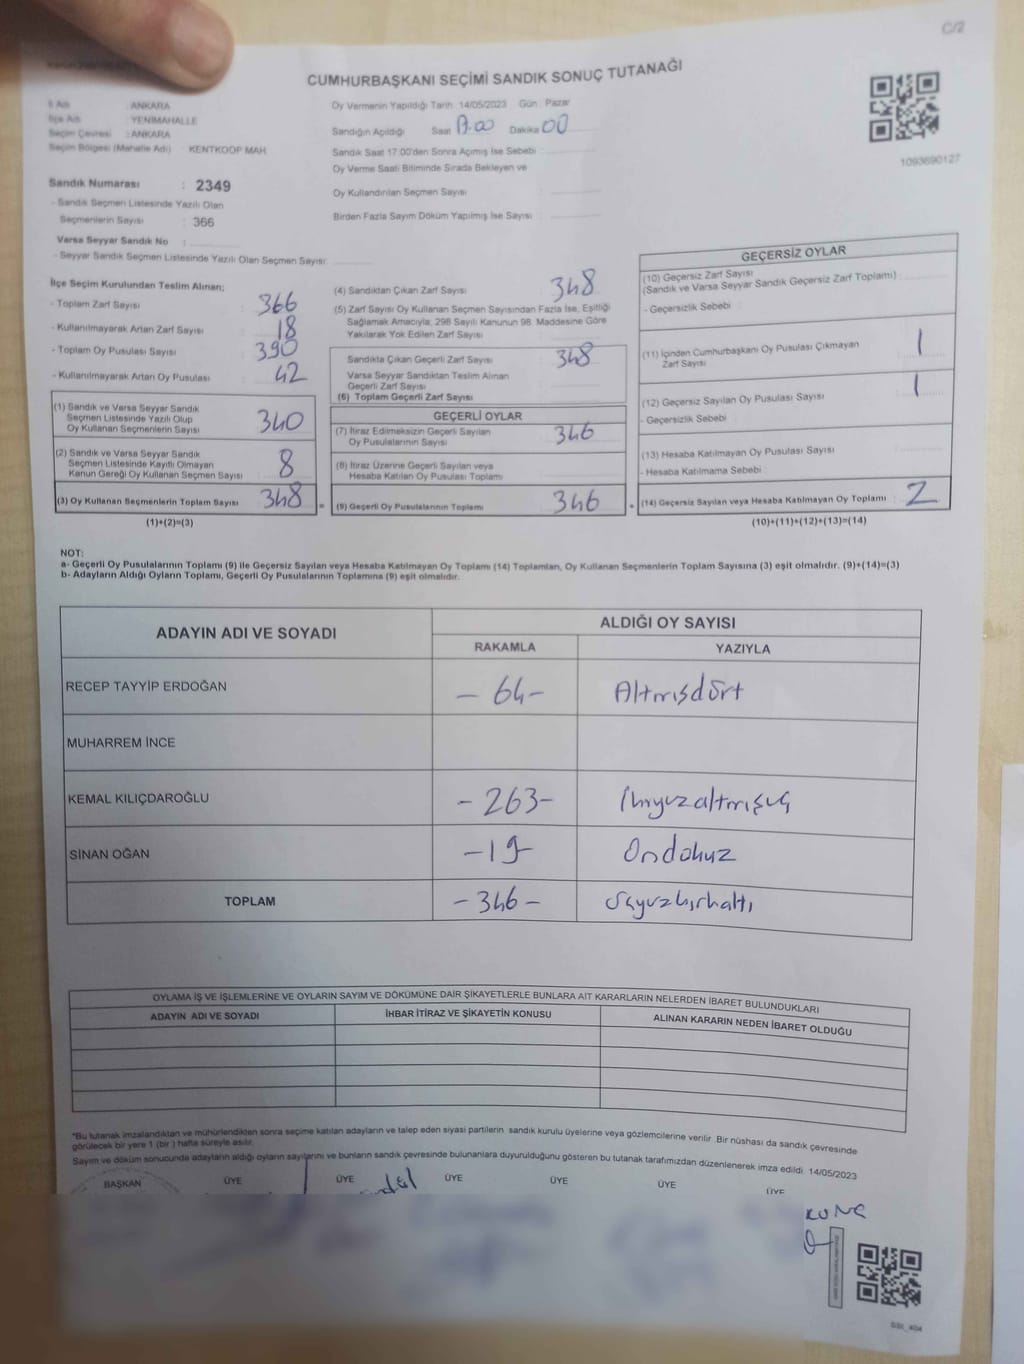 C/2
CUMHURBAŞKANI SEÇİMİ SANDIK SONUÇ TUTANAĞI
İl Adı : ANKARA
İlçe Adı : YENİMAHALLE
Seçim Çevresi : ANKARA
Seçim Bölgesi (Mahalle Adı) KENTKOOP MAH.
Sandık Numarası : 2349
- Sandık Seçmen Listesinde Yazılı Olan
Seçmenlerin Sayısı : 366
Varsa Seyyar Sandık No :
- Seyyar Sandık Seçmen Listesinde Yazılı Olan Seçmen Sayısı:
Oy Vermenin Yapıldığı Tarih 14/05/2023 Gün : Pazar
Sandığın Açıldığı Saat 17.00 Dakika 00
Sandık Saat 17:00'den Sonra Açımış İse Sebebi :
Oy Verme Saati Bitiminde Sırada Bekleyen ve
Oy Kullandırılan Seçmen Sayısı
Birden Fazla Sayım Döküm Yapılmış İse Sayısı :
1093690127
İlçe Seçim Kurulundan Teslim Alınan;
- Toplam Zarf Sayısı : 366
- Kullanılmayarak Artan Zarf Sayısı : 18
- Toplam Oy Pusulası Sayısı : 390
- Kullanılmayarak Artan Oy Pusulası : 42
(1) Sandık ve Varsa Seyyar Sandık
Seçmen Listesinde Yazılı Olup
Oy Kullanan Seçmenlerin Sayısı 340
(2) Sandık ve Varsa Seyyar Sandık
Seçmen Listesinde Kayıtlı Olmayan
Kanun Gereği Oy Kullanan Seçmen Sayısı 8
(3) Oy Kullanan Seçmenlerin Toplam Sayısı 348
(1)+(2)=(3)
(4) Sandıktan Çıkan Zarf Sayısı 348
(5) Zarf Sayısı Oy Kullanan Seçmen Sayısından Fazla İse, Eşitliği
Sağlamak Amacıyla, 298 Sayılı Kanunun 98. Maddesine Göre
Yakılarak Yok Edilen Zarf Sayısı
Sandıkta Çıkan Geçerli Zarf Sayısı 348
Varsa Seyyar Sandıktan Teslim Alınan
Geçerli Zarf Sayısı
(6) Toplam Geçerli Zarf Sayısı
GEÇERLİ OYLAR
(7) İtiraz Edilmeksizin Geçerli Sayılan
Oy Pusulalarının Sayısı 346
(8) İtiraz Üzerine Geçerli Sayılan veya
Hesaba Katılan Oy Pusulası Toplamı
= (9) Geçerli Oy Pusulalarının Toplamı 346
GEÇERSİZ OYLAR
(10) Geçersiz Zarf Sayısı
(Sandık ve Varsa Seyyar Sandık Geçersiz Zarf Toplamı) :
- Geçersizlik Sebebi :
(11) İçinden Cumhurbaşkanı Oy Pusulası Çıkmayan
Zarf Sayısı 1
(12) Geçersiz Sayılan Oy Pusulası Sayısı 1
- Geçersizlik Sebebi
(13) Hesaba Katılmayan Oy Pusulası Sayısı
- Hesaba Katılmama Sebebi :
+ (14) Geçersiz Sayılan veya Hesaba Katılmayan Oy Toplamı 2
(10)+(11)+(12)+(13)=(14)
NOT:
a- Geçerli Oy Pusulalarının Toplamı (9) ile Geçersiz Sayılan veya Hesaba Katılmayan Oy Toplamı (14) Toplamları, Oy Kullanan Seçmenlerin Toplam Sayısına (3) eşit olmalıdır. (9)+(14)=(3)
b- Adayların Aldığı Oyların Toplamı, Geçerli Oy Pusulalarının Toplamına (9) eşit olmalıdır.
ADAYIN ADI VE SOYADI
ALDIĞI OY SAYISI
RAKAMLA YAZIYLA
RECEP TAYYİP ERDOĞAN - 64 - Altmışdört
MUHARREM İNCE
KEMAL KILIÇDAROĞLU - 263 - İkiyüzaltmışüç
SİNAN OĞAN - 19 - Ondokuz
TOPLAM - 346 - üçyüzkırkaltı
OYLAMA İŞ VE İŞLEMLERİNE VE OYLARIN SAYIM VE DÖKÜMÜNE DAİR ŞİKAYETLERLE BUNLARA AİT KARARLARIN NELERDEN İBARET BULUNDUKLARI
ADAYIN ADI VE SOYADI İHBAR İTİRAZ VE ŞİKAYETİN KONUSU ALINAN KARARIN NEDEN İBARET OLDUĞU
*Bu tutanak imzalandıktan ve mühürlendikten sonra seçime katılan adayların ve talep eden siyasi partilerin sandık kurulu üyelerine veya gözlemcilerine verilir. Bir nüshası da sandık çevresinde
görülecek bir yere 1 (bir ) hafta süreyle asılır.
Sayım ve döküm sonucunda adayların aldığı oyların sayılarını ve bunların sandık çevresinde bulunanlara duyurulduğunu gösteren bu tutanak tarafımızdan düzenlenerek imza edildi. 14/05/2023
BAŞKAN ÜYE ÜYE ÜYE ÜYE ÜYE ÜYE